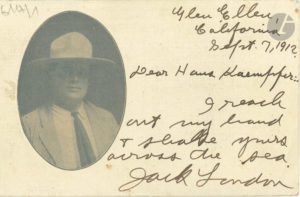 Glen Ellen
California
Sept. 7, 1912
Dear Hans Kaempffer:
I reach
out my hand
& shake yours
across the sea.
Jack London